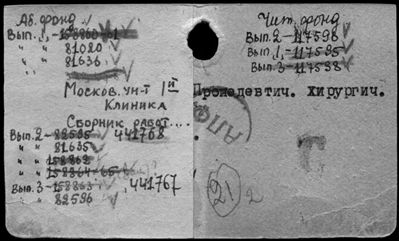 Аб. фонд
Вып. 1,-158860-61
" " 81020
" " 81636
Чит. фонд
Вып. 2-117596
Вып. 1,-117595
Вып. 3-117598
Москов. ун-т I й Пропедевтич. Хирургич.
Клиника
Сборник работ....
Вып. 2-82535 441768
" " 81635
" " 158862
" " 158864-65
Вып. 3-158863 441767
" " 82596
21 2